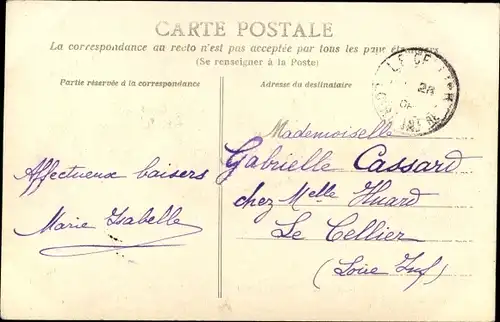 CARTE POSTALE
La correspondance au recto n'est pas acceptée par tous les pays étrangers
(Se renseigner à la Poste)
Partie réservée à la correspondance
Adresse du destinataire
Affectueux baisers
Marie Isabelle
Mademoiselle
Gabrielle Cassard
chez Melle Huard
Le Cellier
(Loire Inf)